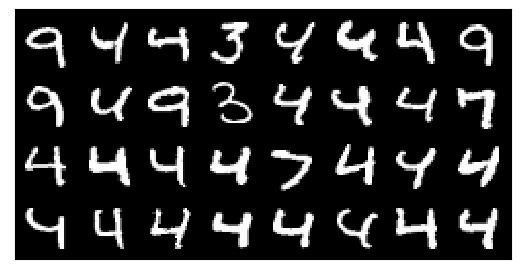 9 4 4 3 4 4 4 9
9 4 9 3 4 4 4 7
4 4 4 4 7 4 4 4
4 4 4 4 4 4 4 4